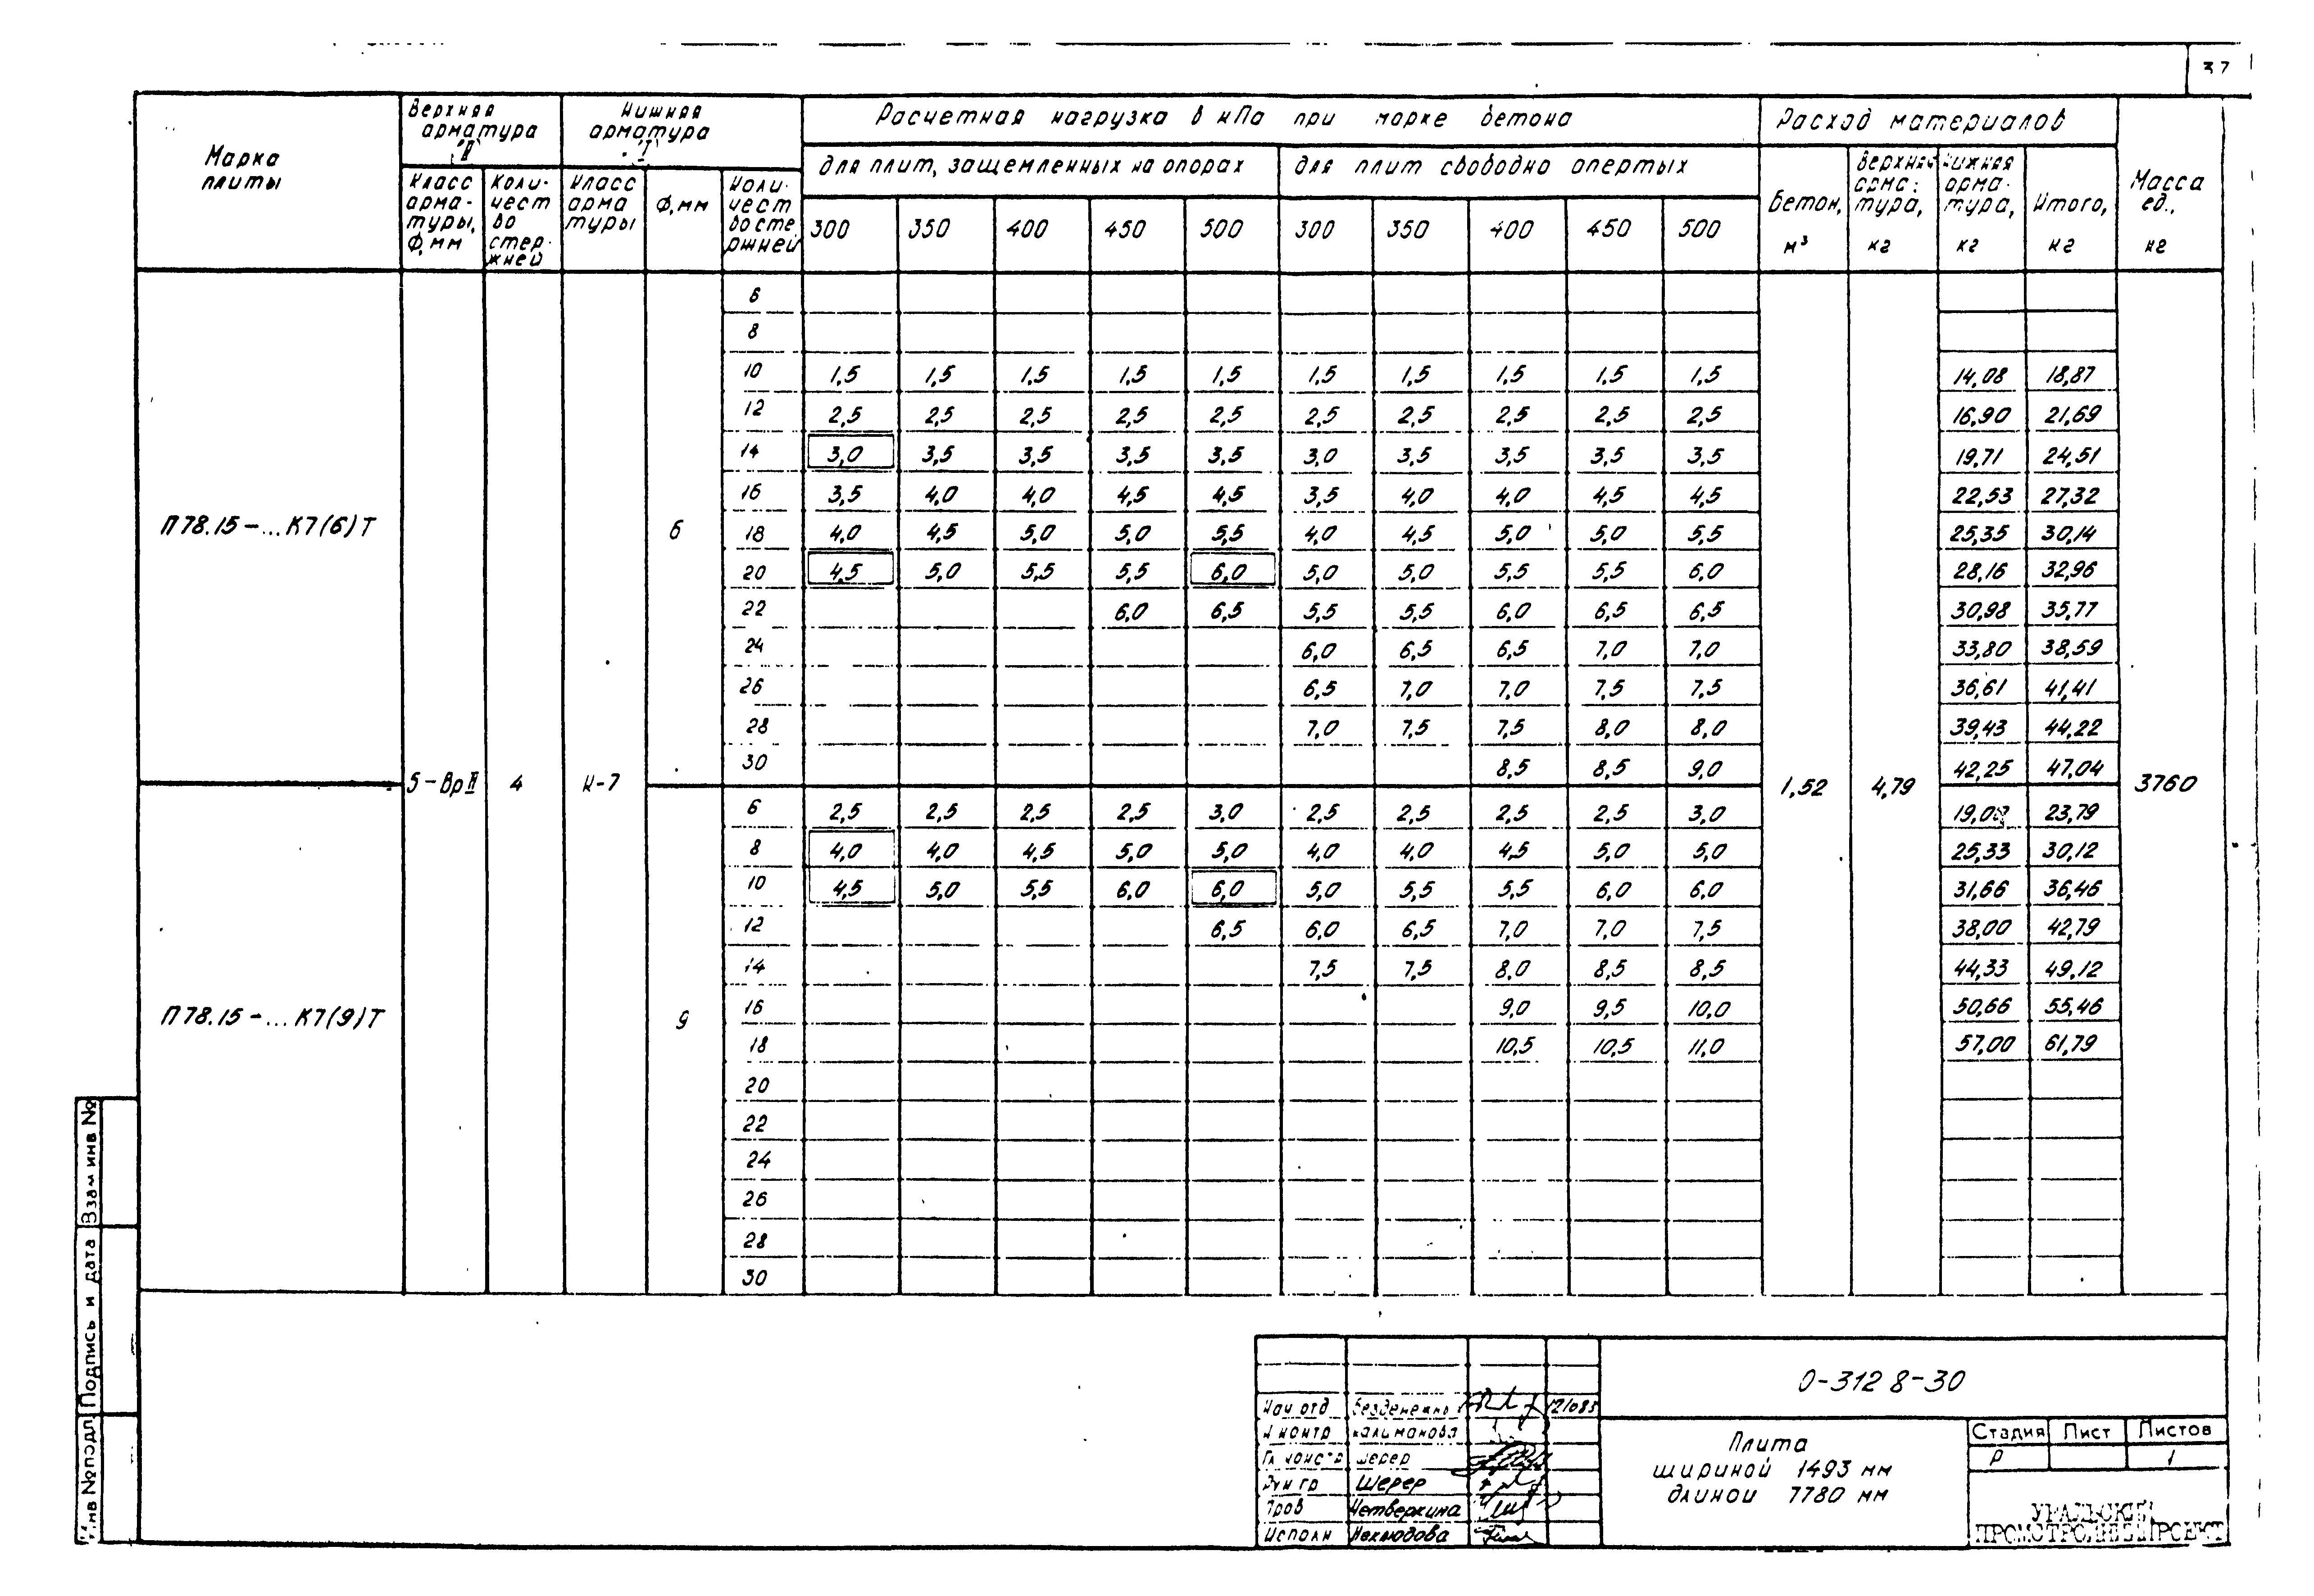 37
Марка плиты
Верхняя арматура "II"
Нижняя арматура "I"
Расчетная нагрузка в кПа при марке бетона
Расход материалов
Масса ед., кг
Класс арма-туры, Ф, мм
Коли-чест во стер-жней
Класс арма туры
Ф, мм
Коли-чест во сте ржней
для плит, защемленных на опорах
для плит свободно опертых
Бетон, м³
Верхняя арма-тура, кг
нижняя арма-тура, кг
Итого, кг
300 350 400 450 500 300 350 400 450 500
П78.15-...К7(6)Т
5-ВрII 4 К-7 6
1,52 4,79 3760
6
8
10 1,5 1,5 1,5 1,5 1,5 1,5 1,5 1,5 1,5 1,5 14,08 18,87
12 2,5 2,5 2,5 2,5 2,5 2,5 2,5 2,5 2,5 2,5 16,90 21,69
14 3,0 3,5 3,5 3,5 3,5 3,0 3,5 3,5 3,5 3,5 19,71 24,51
16 3,5 4,0 4,0 4,5 4,5 3,5 4,0 4,0 4,5 4,5 22,53 27,32
18 4,0 4,5 5,0 5,0 5,5 4,0 4,5 5,0 5,0 5,5 25,35 30,14
20 4,5 5,0 5,5 5,5 6,0 5,0 5,0 5,5 5,5 6,0 28,16 32,96
22 6,0 6,5 5,5 5,5 6,0 6,5 6,5 30,98 35,77
24 6,0 6,5 6,5 7,0 7,0 33,80 38,59
26 6,5 7,0 7,0 7,5 7,5 36,61 41,41
28 7,0 7,5 7,5 8,0 8,0 39,43 44,22
30 8,5 8,5 9,0 42,25 47,04
П78.15-...К7(9)Т
9
6 2,5 2,5 2,5 2,5 3,0 2,5 2,5 2,5 2,5 3,0 23,79
8 4,0 4,0 4,5 5,0 5,0 4,0 4,0 4,5 5,0 5,0 25,33 30,12
10 4,5 5,0 5,5 6,0 6,0 5,0 5,5 5,5 6,0 6,0 31,66 36,46
12 6,5 6,0 6,5 7,0 7,0 7,5 38,00 42,79
14 7,5 7,5 8,0 8,5 8,5 44,33 49,12
16 9,0 9,5 10,0 50,66 55,46
18 10,5 10,5 11,0 57,00 61,79
20
22
24
26
28
30
Взам инв №
Подпись и дата
Инв № подл
0-312 8-30
Нач отд
Н контр Калиманова
Гл констр Шерер
Рук гр Шерер
Пров Четверкина
Исполн
Плита
шириной 1493 мм
длиной 7780 мм
Стадия Лист Листов
Р 1
УРАЛЬСКИЙ
ПРОМСТРОЙНИИПРОЕКТ